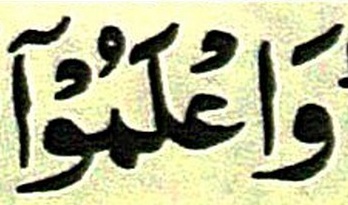 وَاعْلَمُوْۤا